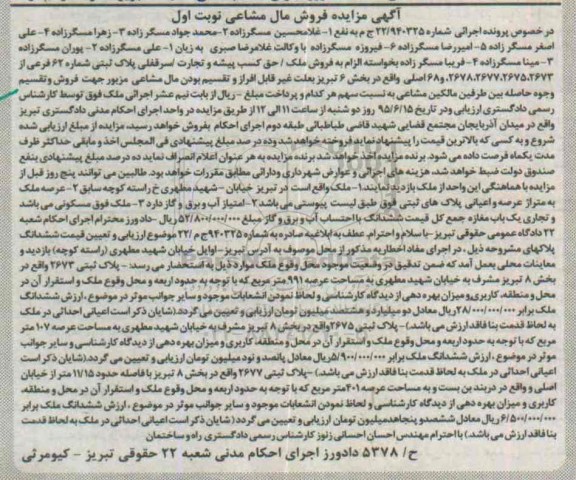 آگهی مزایده فروش مال مشاعی نوبت اول
در خصوص پرونده اجرائی شماره ۲۲/۹۴۰۳۲۵ ج م به نفع ۱- غلامحسین مسگرزاده ۲- محمد جواد مسگر زاده ۳- زهرا مسگرزاده ۴- علی
اصغر مسگر زاده ۵- امیررضا مسگرزاده ۶- فیروزه مسگرزاده با وکالت غلامرضا صبری به زیان ۱- علی مسگرزاده ۲- پوران مسگرزاده
۳- مینا مسگرزاده ۴- فریبا مسگر زاده بخواسته الزام به فروش ملک / حق کسب پیشه و تجارت /سرقفلی پلاک ثبتی شماره ۶۲ فرعی از
۲۶۷۸،۲۶۷۷،۲۶۷۵،۲۶۷۳ و ۶۸ اصلی واقع در بخش ۶ تبریز بعلت غیر قابل افراز و تقسیم بودن مال مشاعی مزبور جهت فروش وتقسیم
وجوه حاصله بین طرفین مالکین مشاعی به نسبت سهم هر کدام و پرداخت مبلغ - ریال از بابت نیم عشر اجرائی ملک فوق توسط کارشناس
رسمی دادگستری ارزیابی ودر تاریخ ۹۵/۶/۱۵ روز دو شنبه از ساعت ۱۱ الی ۱۲ از طریق مزایده در واحد اجرای احکام مدنی دادگستری تبریز
واقع در میدان آذربایجان مجتمع قضایی شهید قاضی طباطبائی طبقه دوم اجرای احکام بفروش خواهد رسید، مزایده از مبلغ ارزیابی شده
شروع و به کسی که بالاترین قیمت را پیشنهاد نماید فروخته خواهد شد ده در صد مبلغ پیشنهادی فی المجلس اخذ و مابقی حداکثر ظرف
مدت یکماه فرصت داده می شود. برنده مزایده اعلام خواهد شد برنده مزایده به هر عنوان اعلام انصراف نماید ده درصد مبلغ پیشنهادی بنفع
صندوق دولت ضبط خواهد شد، هزینه های اجرائی و عوارض شهرداری ودارائی مطابق مقررات خواهد بود. طالبین می توانند پنج روز قبل از
مزایده با هماهنگی این واحد از ملک بازدید نمایند. ۱- ملک واقع است در تبریز خیابان - شهید مطهری خ راسته کوچه سابق ۲- عرصه ملک
به متراژ عرصه و اعیانی پلاک های ثبتی فوق طبق لیست پیوستی می باشد ۲- امتیاز آب و برق و گاز دارد ۳- ملک فوق مسکونی می باشد
و تجاری یک باب مغازه جمع کل قیمت ششدانگ با احتساب آب و برق و گاز مبلغ ۵۲/۸۰۰/۰۰۰/۰۰۰ ریال -دادورز محترم اجرای احکام شعبه
۲۲ دادگاه عمومی حقوقی تبریز -با سلام و احترام. عطف به ابلاغیه صادره به شماره ۹۴۰۳۲۵ ج م /۲۲ موضوع ارزیابی و تعیین قیمت ششدانگ
پلاکهای مشروحه ذیل ، در اجرای مفاد اخطاریه مذکور از محل موصوف به آدرس تبریز- اوایل خیابان شهید مطهری (راسته کوچه) بازدید و
معاینات محلی بعمل آمد که ضمن تدقیق در وضعیت موجود محل وقوع ملک موارد ذیل به استحضار می رسد - پلاک ثبتی ۲۶۷۳ واقع در
بخش ۸ تبریز مشرف به خیابان شهید مطهری به مساحت عرصه ۹۹۱ متر مربع که با توجه به حدود اربعه و محل وقوع ملک و استقرار آن در
محل و منطقه، کاربری ومیزان بهره دهی از دیدگاه کارشناسی و لحاظ نمودن انشعابات موجود و سایر جوانب موثر در موضوع ، ارزش ششدانگ
ملک برابر ۲۸/۰۰۰/۰۰۰/۰۰۰ ریال معادل دو میلیارد و هشتصد میلیون تومان ارزیابی و تعیین می گردد.(شایان ذکر است اعیانی احداثی در ملک
به لحاظ قدمت بنا فاقد ارزش می باشد)- پلاک ثبتی ۲۶۷۵ واقع در بخش ۸ تبریز مشرف به خیابان شهید مطهری به مساحت عرصه ۱۰۷ متر
مربع که با توجه به حدود اربعه و محل وقوع ملک و استقرار آن در محل و منطقه، کاربری و میزان بهره دهی از دیدگاه کارشناسی و سایر جوانب
موثر در موضوع ، ارزش ششدانگ ملک برابر ۵/۹۰۰/۰۰۰/۰۰۰ ریال معادل پانصد و نود میلیون تومان ارزیابی و تعیین می گردد.(شایان ذکر است
اعیانی احداثی در ملک به لحاظ قدمت بنا فاقد ارزش می باشد) -پلاک ثبتی ۲۶۷۷ واقع در بخش ۸ تبریز با فاصله حدود ۱۱/۱۵ متر از خیابان
اصلی و واقع در دربند بن بست و به مساحت عرصه ۴۰۱ متر مربع که با توجه به حدود اربعه و محل وقوع ملک و استقرار آن در محل و منطقه،
کاربری و میزان بهره دهی از دیدگاه کارشناسی و لحاظ نمودن انشعابات موجود و سایر جوانب موثر در موضوع ، ارزش ششدانگ ملک برابر
۶/۵۰۰/۰۰۰/۰۰۰ ریال معادل ششصد و پنجاه میلیون تومان ارزیابی و تعیین می گردد (شایان ذکر است اعیانی احداثی در ملک به لحاظ قدمت
بنا فاقد ارزش می باشد) با احترام مهندس احسان احسانی زنوز کارشناس رسمی دادگستری راه و ساختمان
ح/ ۵۳۷۸ دادورز اجرای احکام مدنی شعبه ۲۲ حقوقی تبریز - کیومرثی